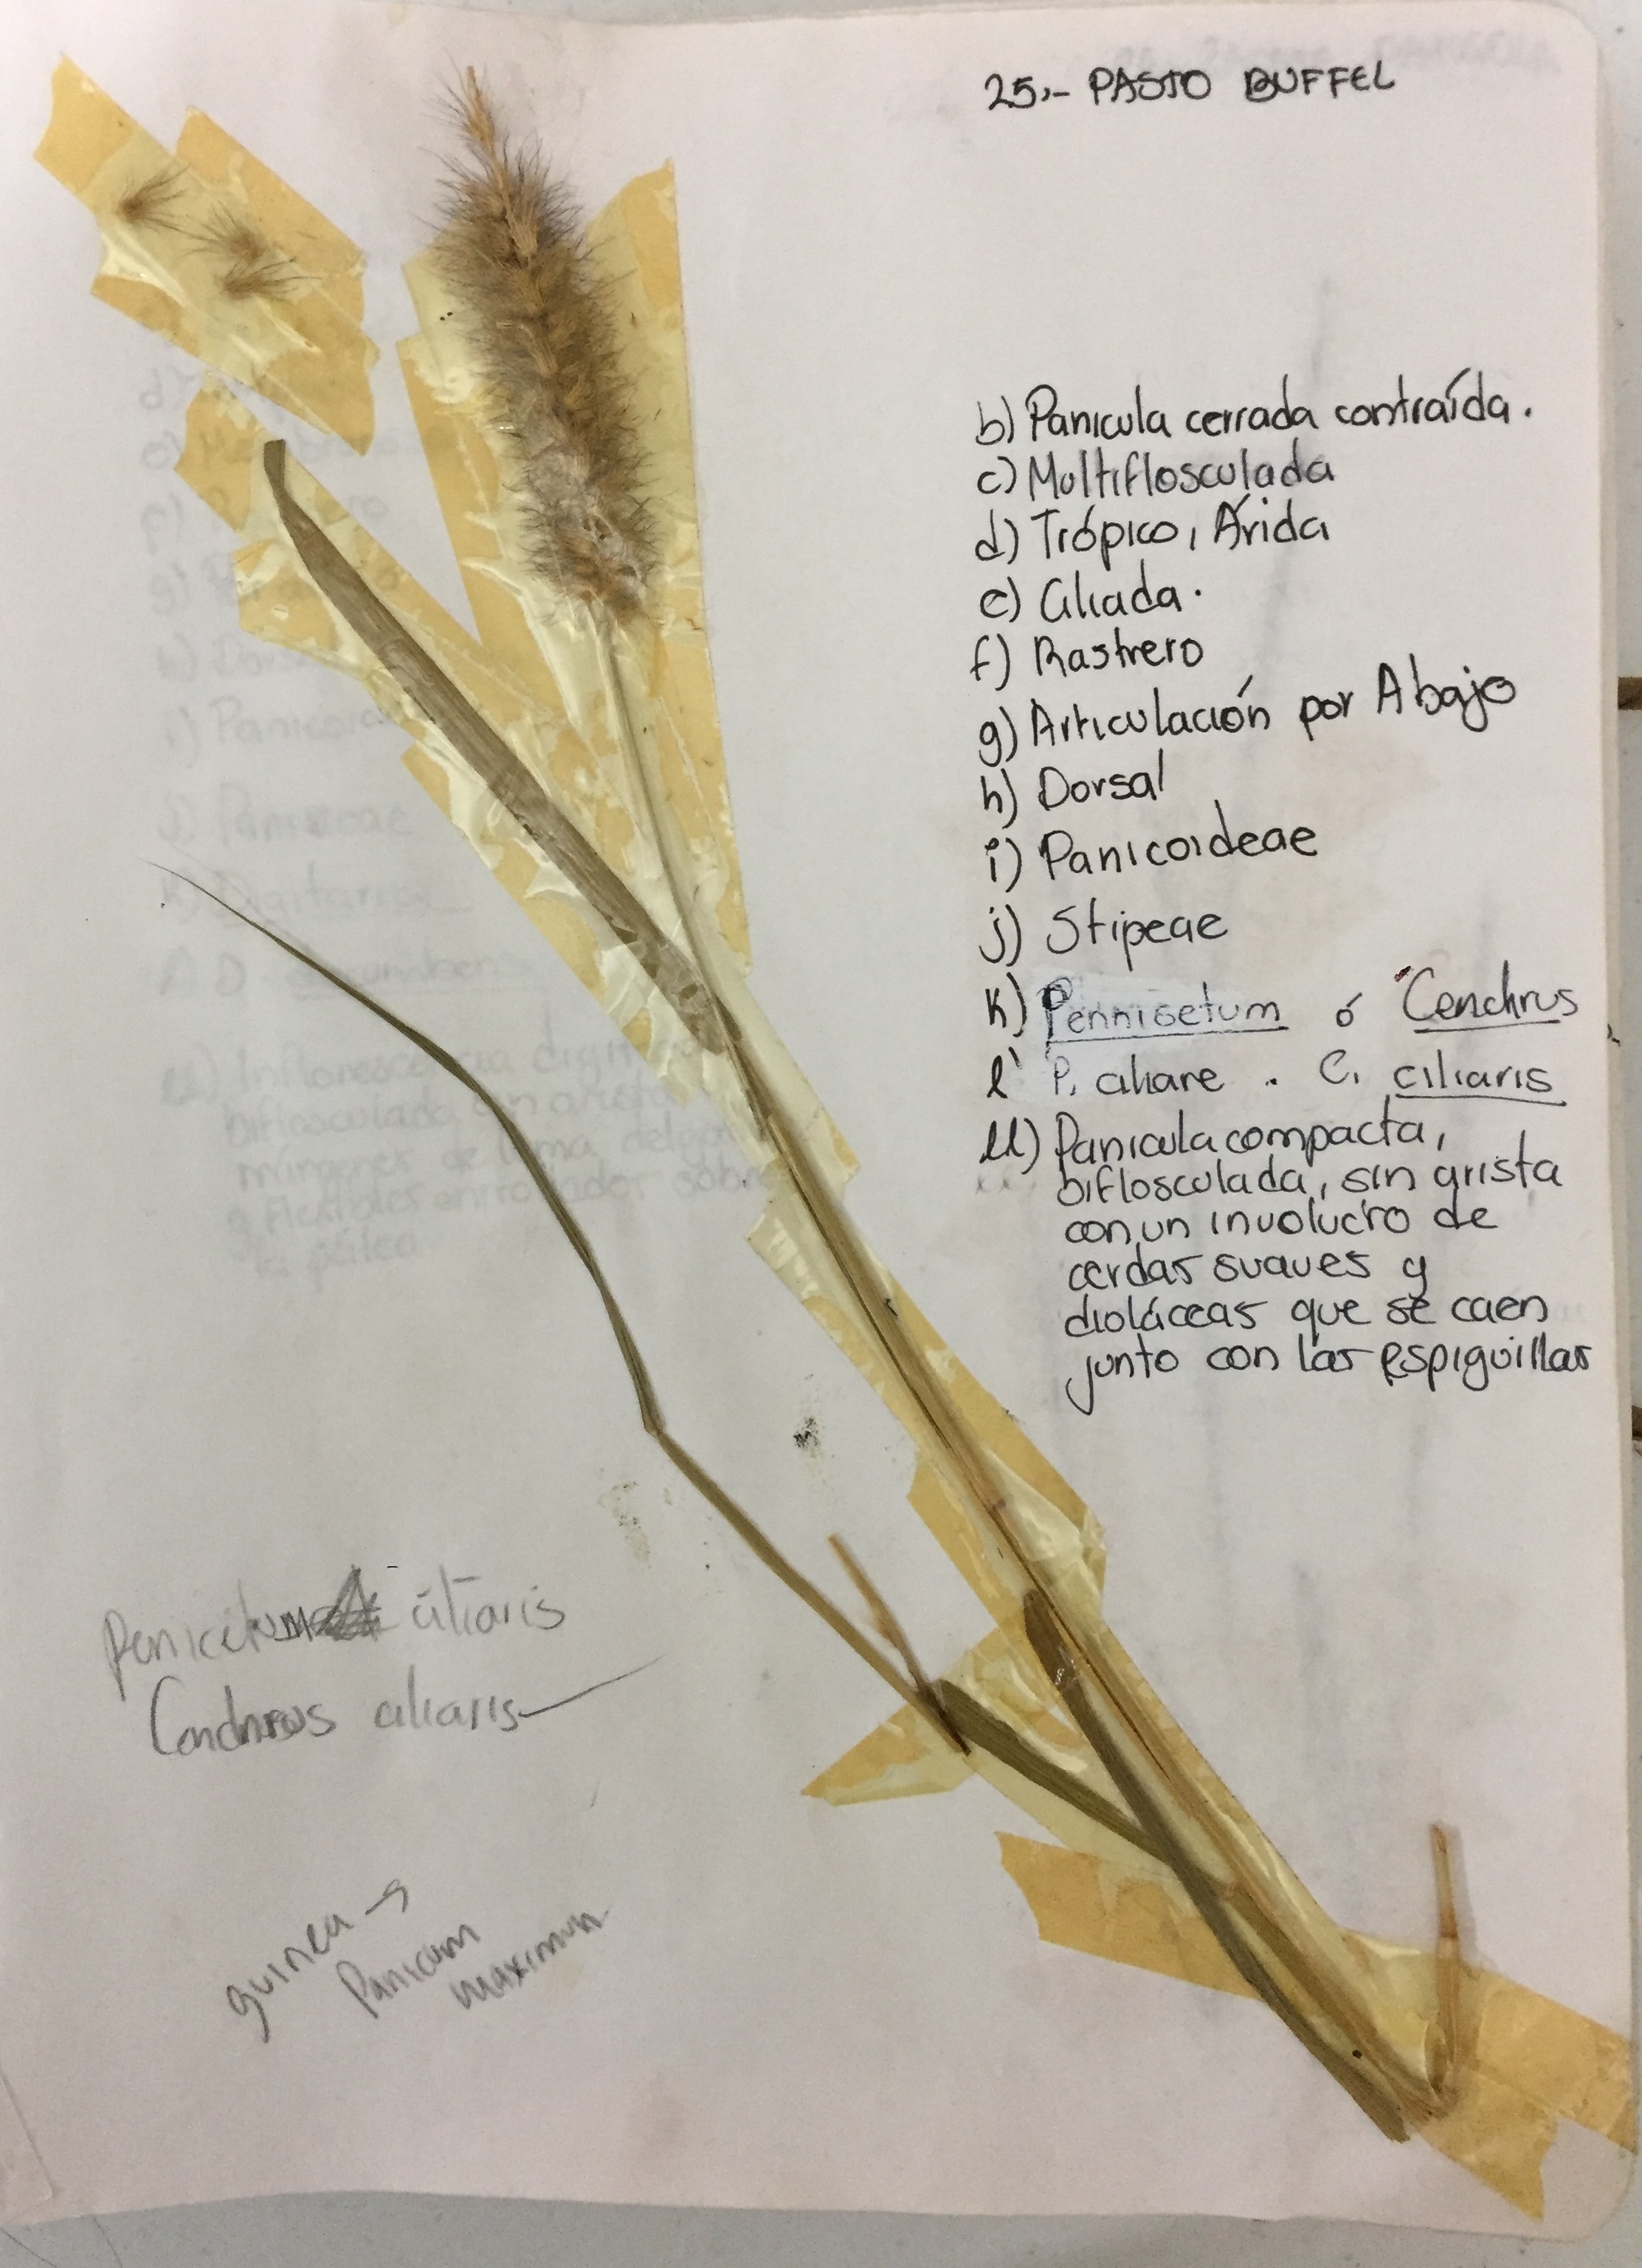 25.- PASTO BUFFEL
b) Panicula cerrada contraída.
c) Multiflosculada
d) Trópico, Árida
e) Ciliada.
f) Rastrero
g) Articulación por Abajo
h) Dorsal
i) Panicoideae
j) Stipeae
k) Pennisetum ó Cenchrus
l) P. ciliare . C. ciliaris
ll) Panicula compacta,
biflosculada, sin arista
con un involucro de
cerdas suaves y
dioláceas que se caen
junto con las espiguillas
Penicetum ciliaris
Cenchrus ciliaris
guinea →
Panicum
maximun